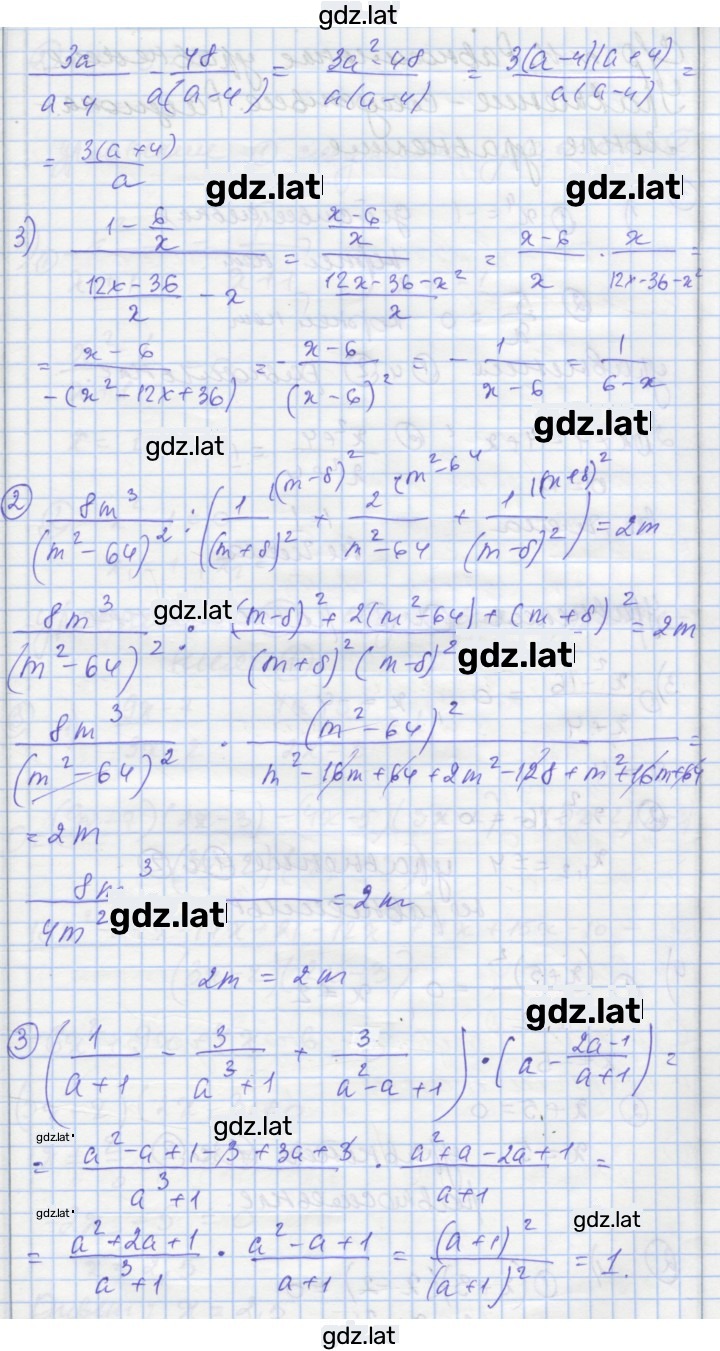 gdz.lat
3a/(a-4) - 48/(a(a-4)) = (3a²-48)/(a(a-4)) = 3(a-4)(a+4)/(a(a-4)) =
= 3(a+4)/a
gdz.lat gdz.lat
3) (1 - 6/x)/((12x-36)/x - x) = ((x-6)/x)/((12x-36-x²)/x) = (x-6)/x · x/(12x-36-x²) =
= (x-6)/(-(x²-12x+36)) = - (x-6)/(x-6)² = - 1/(x-6) = 1/(6-x)
gdz.lat
gdz.lat
② 8m³/(m²-64)² : (1/(m+8)² + 2/(m²-64) + 1/(m-8)²) = 2m
(m-8)² m²-64 (m+8)²
gdz.lat
8m³/(m²-64)² : ((m-8)²+2(m²-64)+(m+8)²)/((m+8)²(m-8)²) = 2m
gdz.lat
8m³/(m²-64)² · (m²-64)²/(m²-16m+64+2m²-128+m²+16m+64) =
= 2m
8m³/4m² = 2m
gdz.lat
2m = 2m
gdz.lat
③ (1/(a+1) - 3/(a³+1) + 3/(a²-a+1)) · (a - (2a-1)/(a+1)) =
gdz.lat
gdz.lat
= (a²-a+1-3+3a+3)/(a³+1) · (a²+a-2a+1)/(a+1) =
gdz.lat
gdz.lat
= (a²+2a+1)/(a³+1) · (a²-a+1)/(a+1) = (a+1)²/(a+1)² = 1.
gdz.lat